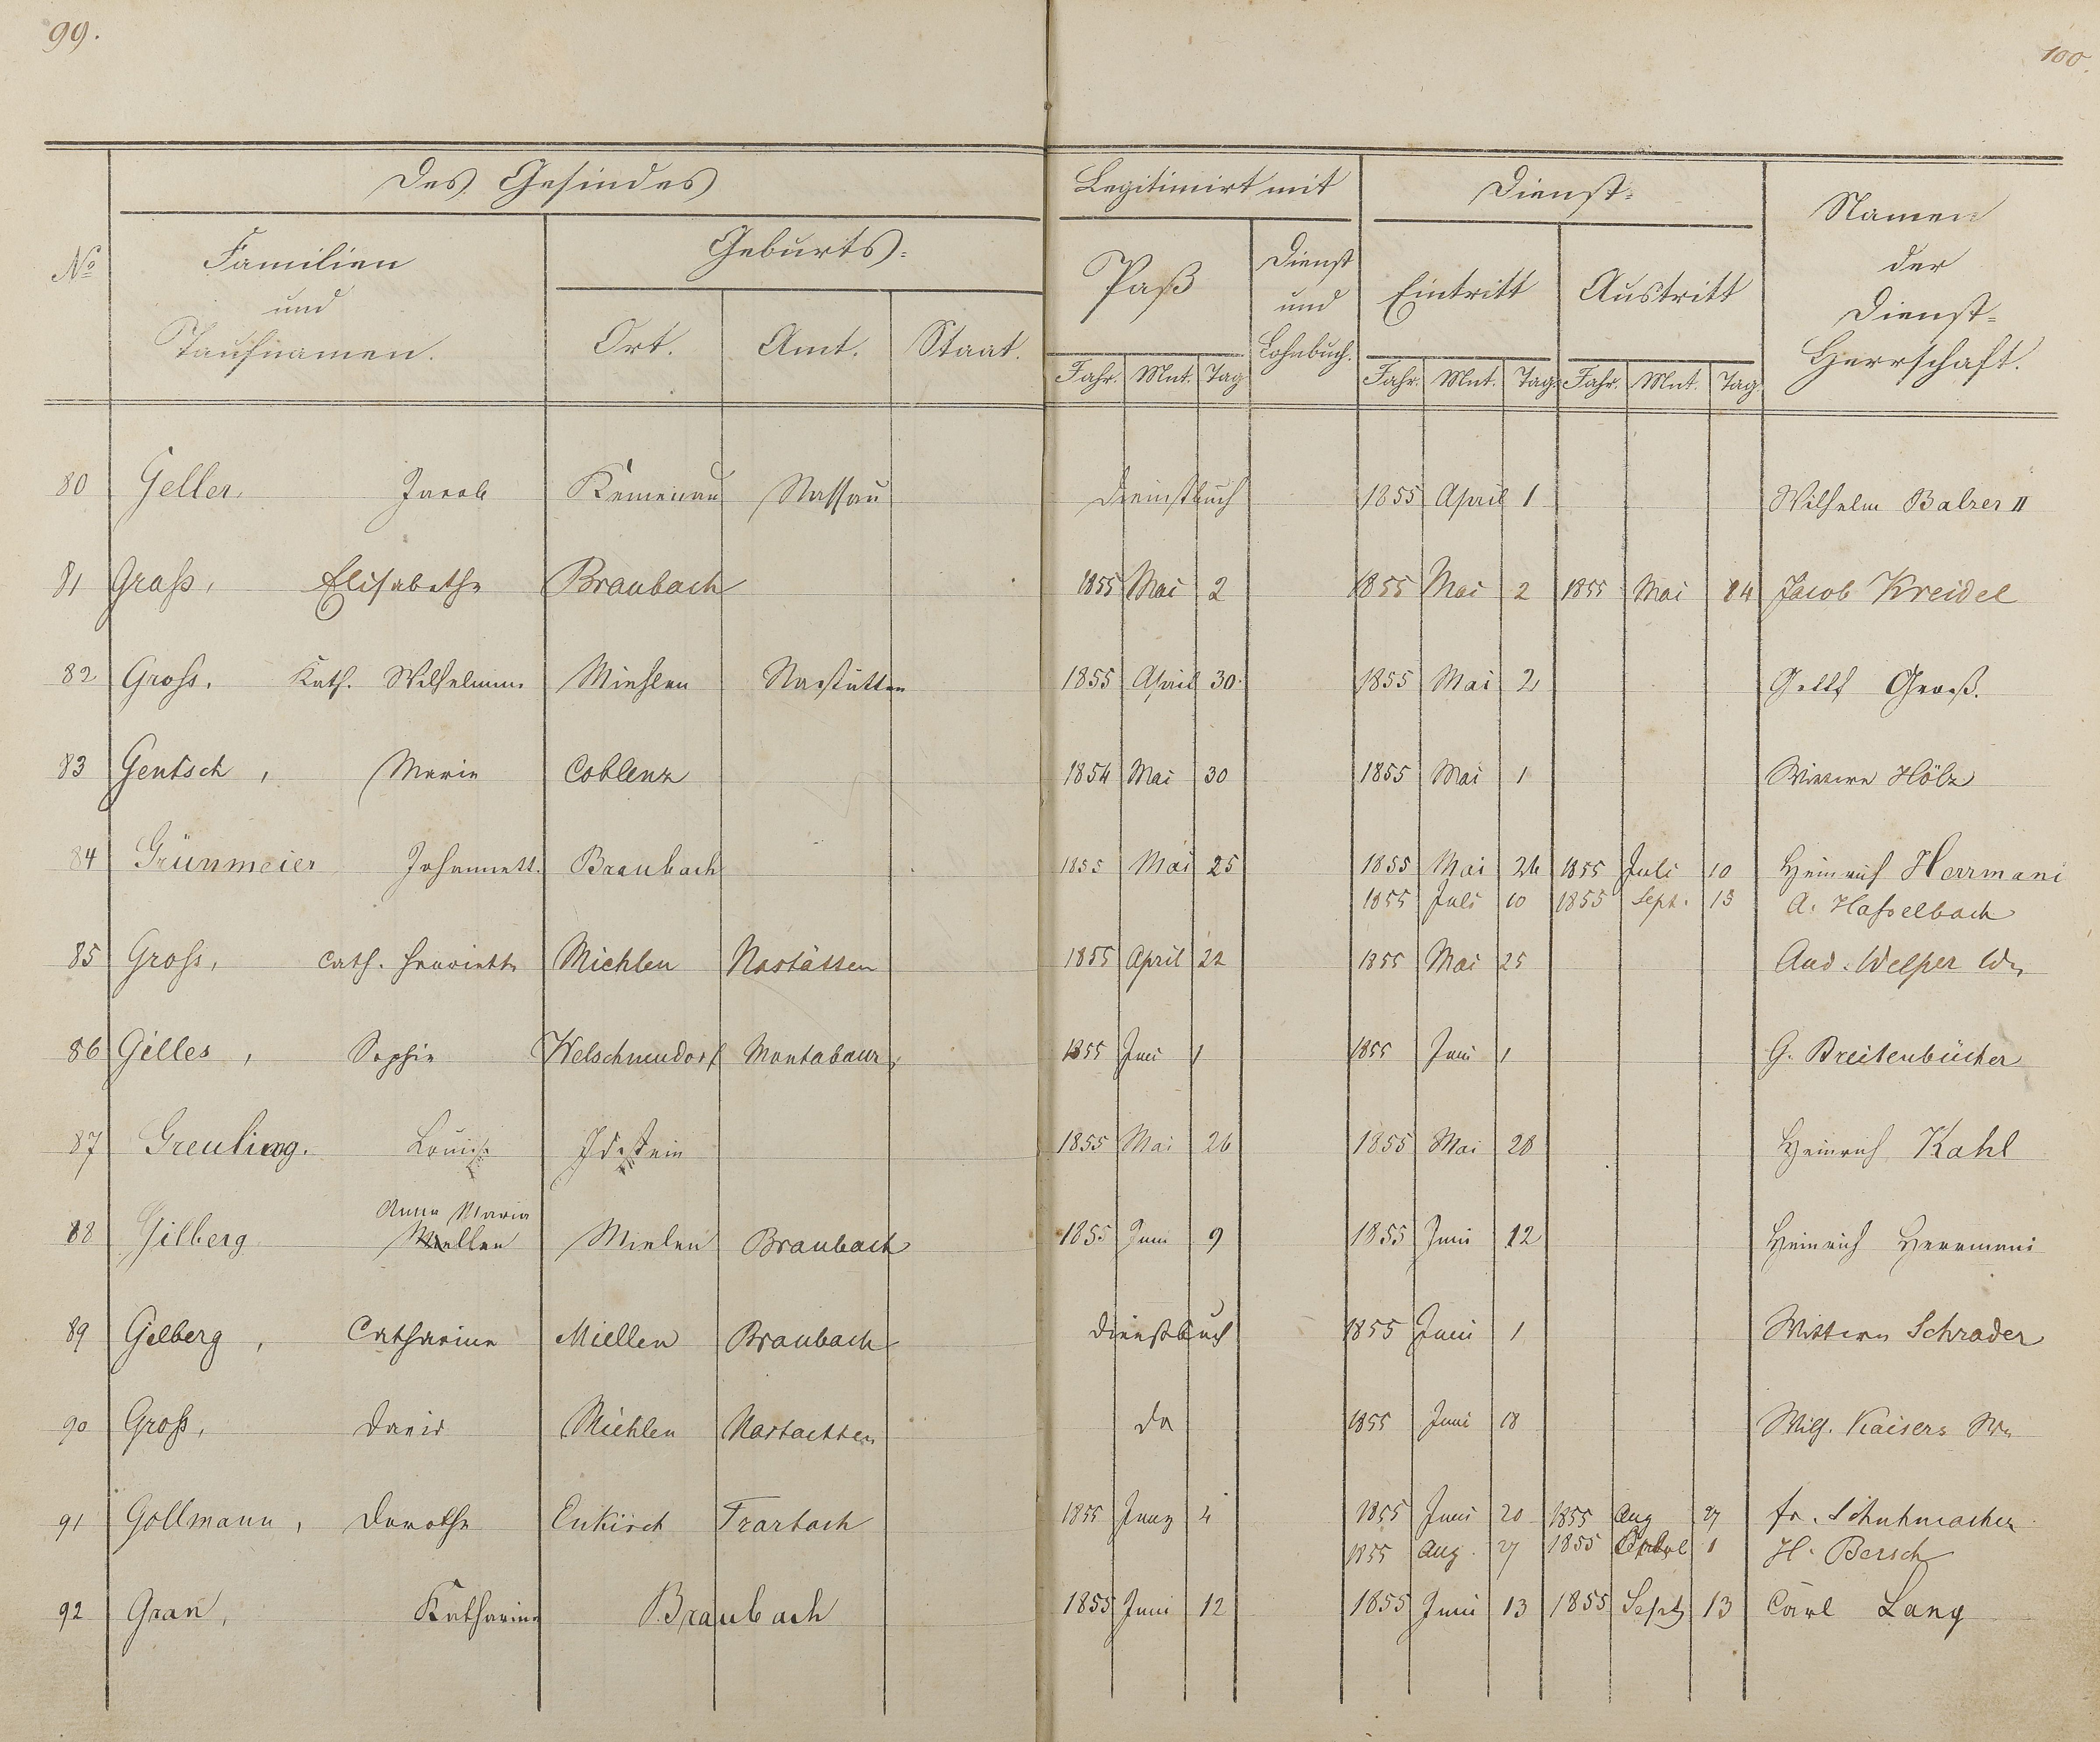 99.
100.
Des Gesindes
Legitimirt mit
Dienst-
Namen der Dienst-Herrschaft.
No
Familien und Taufnamen.
Geburts-
Paß
Dienst und Lohnbuch.
Eintritt
Austritt
Ort. Amt. Staat.
Jahr. Mnt. Tag
Jahr. Mnt. Tag. Jahr. Mnt. Tag.
80 Geller, Jacob Kemenau Nassau Dienstbuch 1855 April 1 Wilhelm Balzer II
81 Graß, Elisabethe Braubach 1855 Mai 2 1855 Mai 2 1855 Mai 24 Jacob Kreidel
82 Groß, Kath. Wilhelmine Miehlen Nastätten 1855 April 30. 1855 Mai 2 Groß.
83 Gentsch, Marie Coblenz 1854 Mai 30 1855 Mai 1 Wittwe Hölz
84 Grünmeier Johannett. Braubach 1855 Mai 25 1855 Mai 26 1855 Juli 10 Heinrich Herrmani
1855 Juli 10 1855 Sept. 13 A. Haßelbach
85 Groß, Cath. Henriette Miehlen Nastätten 1855 April 22 1855 Mai 25 And. Welper Ww
86 Gilles, Sophie Welschneudorf Montabaur 1855 Juni 1 1855 Juni 1 G. Breitenbücher
87 Greuling. Louise Idstein 1855 Mai 26 1855 Mai 28 Heinrich Kahl
Anna Maria
88 Gilberg Miellen Mielen Braubach 1855 Juni 9 1855 Juni 12 Heinrich Herrmani
89 Gelberg, Catharine Miellen Braubach Dienstbuch 1855 Juni 1 Wittwe Schrader
90 Groß, David Miehlen Nastaetten do 1855 Juni 18 Wilh. Kaisers Ww
91 Gollmann, Dorothe Enkirch Trarbach 1855 Juny 4 1855 Juni 20 1855 Aug 27 Fr. Schuhmacher
1855 Aug. 27 1855 1 H. Bersch
92 Grau, Katharine Braubach 1855 Juni 12 1855 Juni 13 1855 Sept 13 Carl Lang